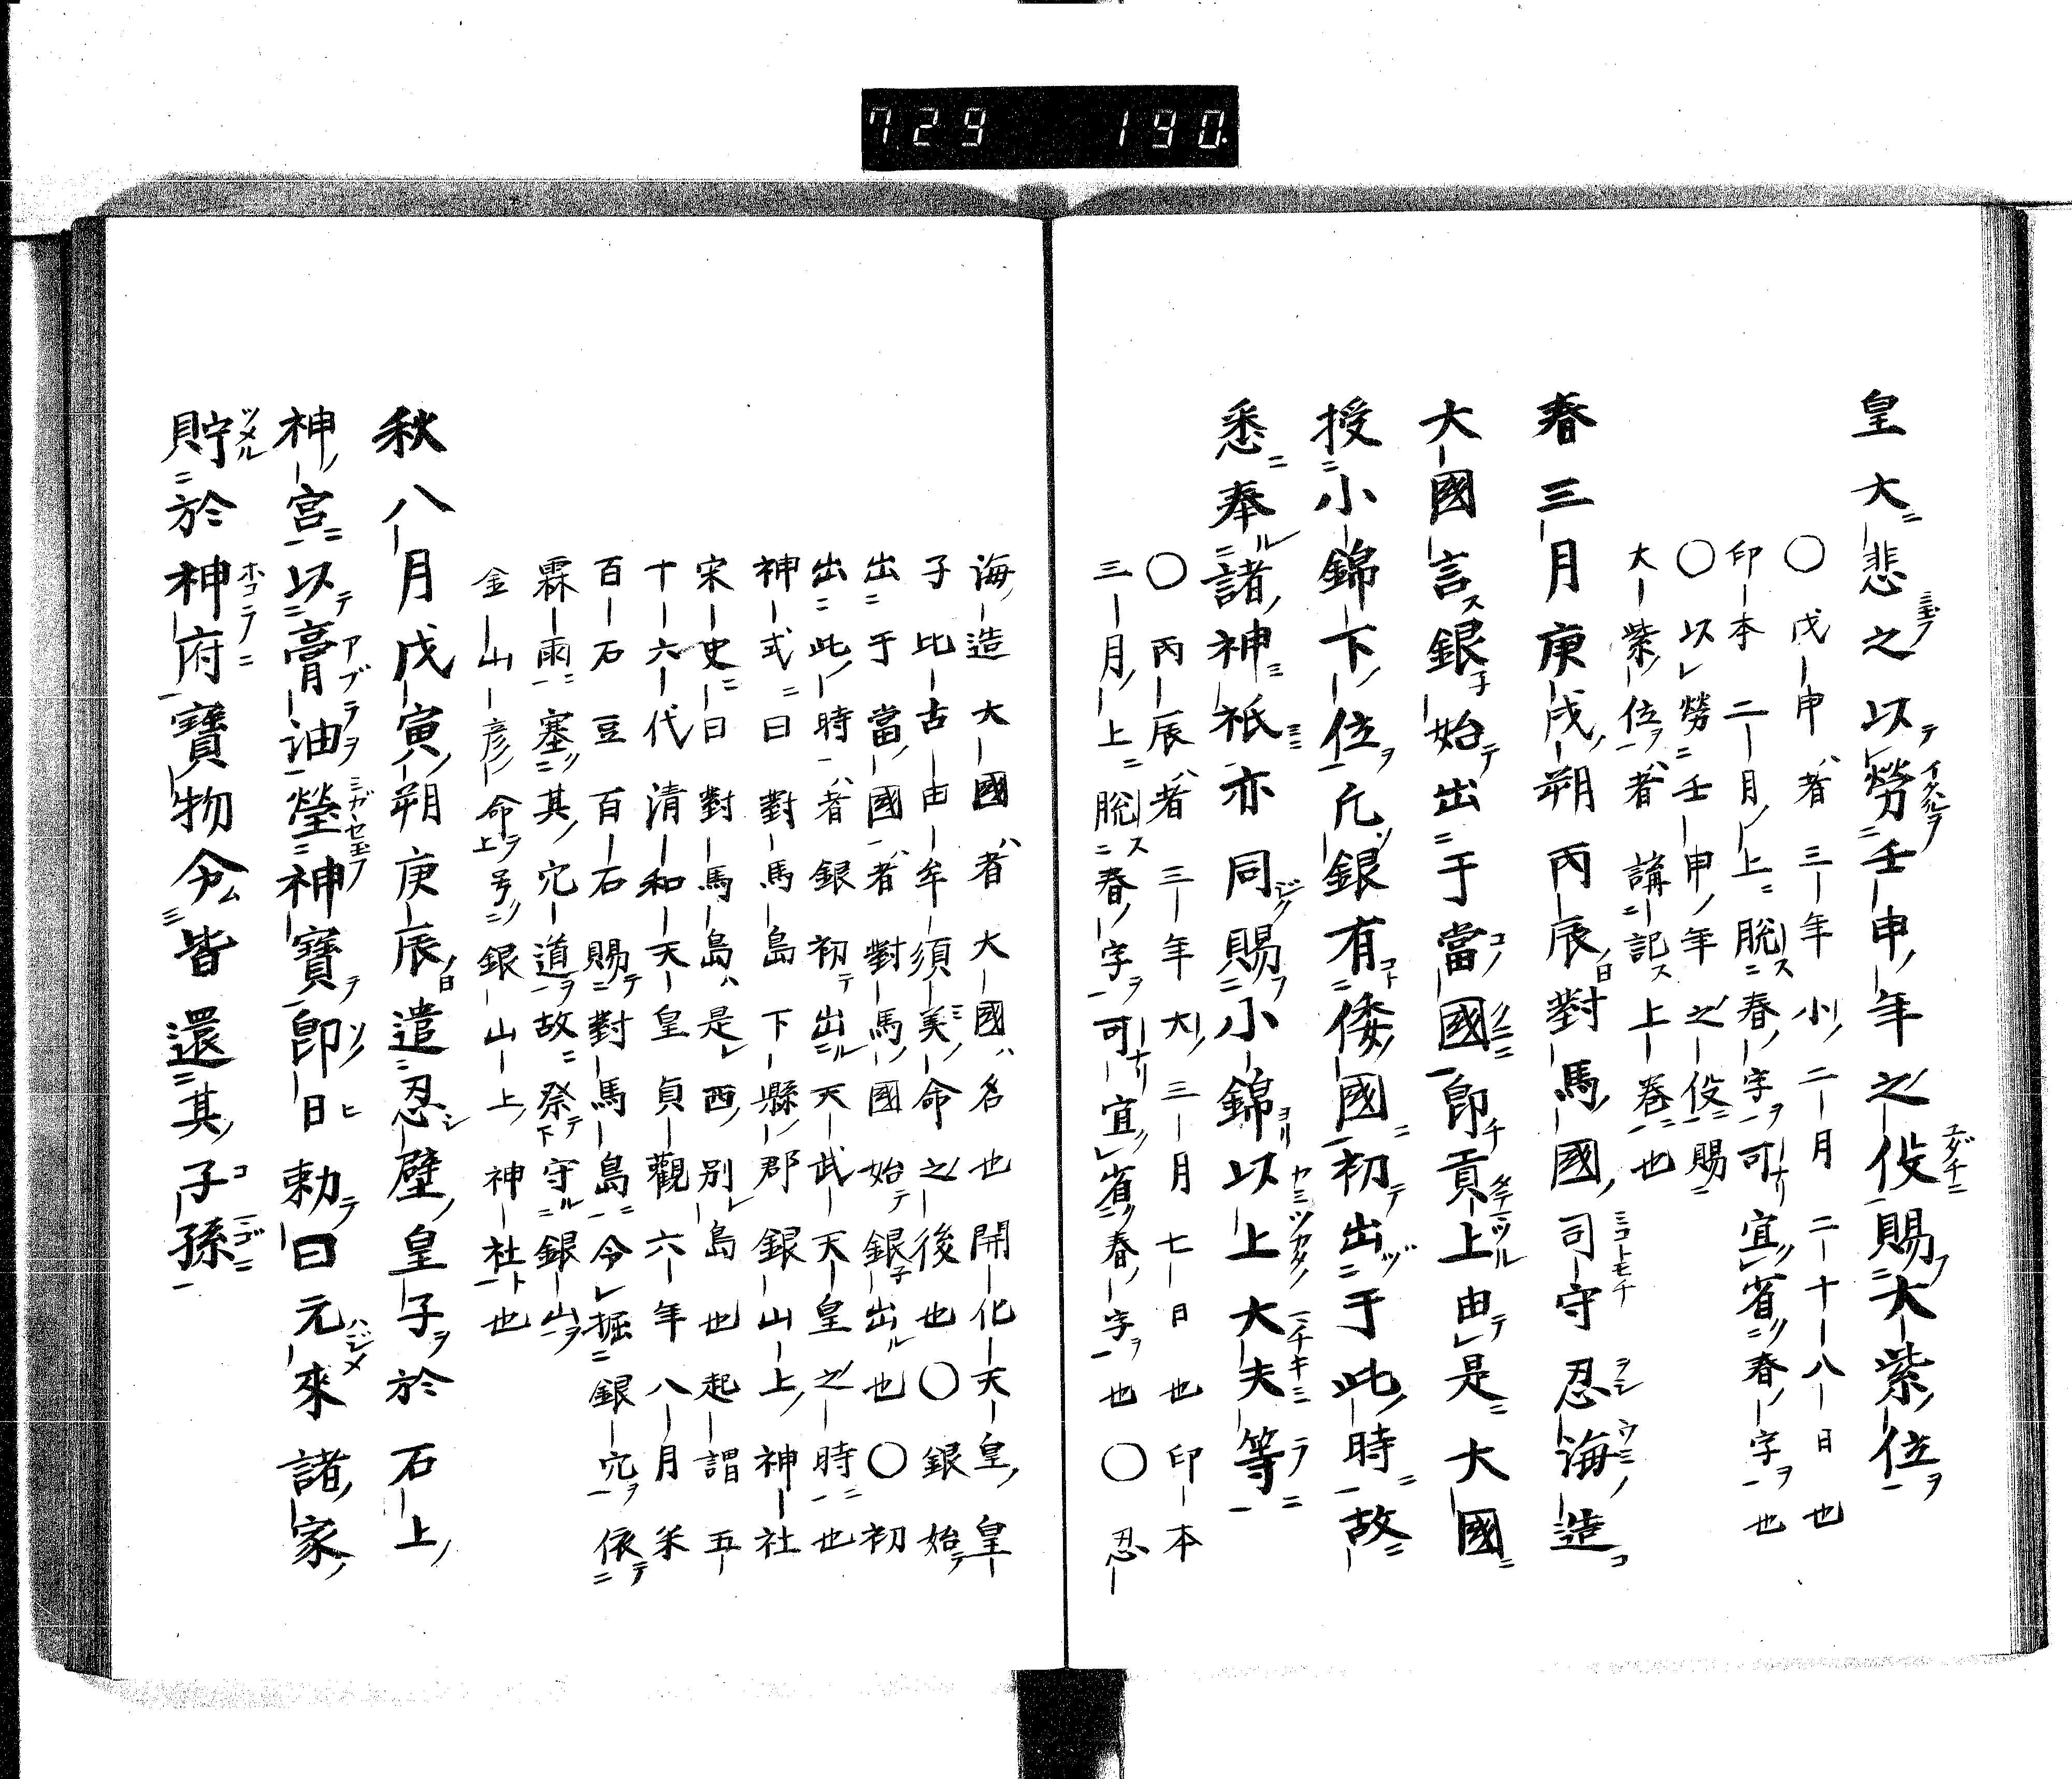 729 190
皇大悲之以勞壬申年之役賜大紫位
〇戊申者三年小二月二十八日也
印本二月上脫春字可宜省春字也
〇以勞壬申年之役賜
大紫位者講記上卷也
春三月庚戌朔丙辰對馬國司守忍海造
大國言銀始出于當國卽貢上由是大國
授小錦下位凡銀有倭國初出于此時故
悉奉諸神祇亦同賜小錦以上大夫等
〇丙辰者三年大三月七日也印本
三月上脫春字可宜省春字也〇忍
海造大國者大國名也開化天皇皇
子比古由牟須美命之後也〇銀始
出于當國者對馬國始銀出也〇初
出此時者銀初出天武天皇之時也
神式曰對馬島下縣郡銀山上神社
宋史曰對馬島是西別島也起謂五
十六代清和天皇貞觀六年八月米
百石豆百石賜對馬島令掘銀穴依
霖雨塞其穴道故祭守銀山
金山彦命号銀山上神社也
秋八月戊寅朔庚辰遣忍壁皇子於石上
神宮以膏油瑩神寶卽日勅曰元來諸家
貯於神府寶物今皆還其子孫